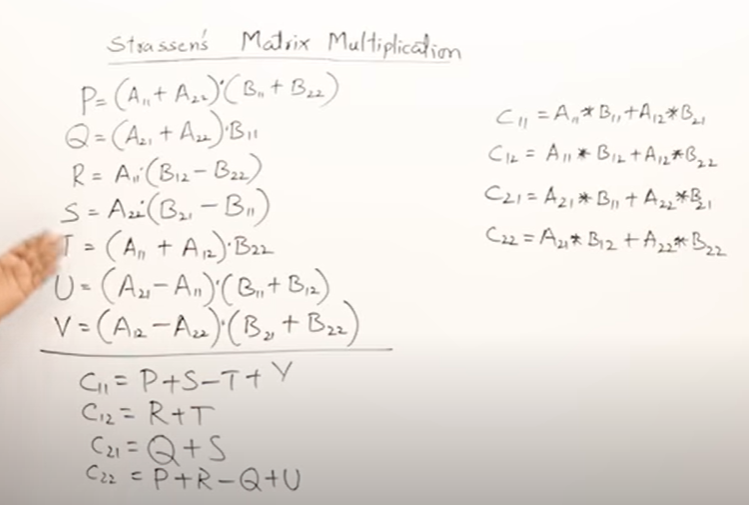 Strassen's Matrix Multiplication
P=(A₁₁+A₂₂)·(B₁₁+B₂₂)
Q=(A₂₁+A₂₂)·B₁₁
R=A₁₁·(B₁₂−B₂₂)
S=A₂₂·(B₂₁−B₁₁)
T=(A₁₁+A₁₂)·B₂₂
U=(A₂₁−A₁₁)·(B₁₁+B₁₂)
V=(A₁₂−A₂₂)·(B₂₁+B₂₂)
C₁₁=P+S−T+V
C₁₂=R+T
C₂₁=Q+S
C₂₂=P+R−Q+U
C₁₁=A₁₁*B₁₁+A₁₂*B₂₁
C₁₂=A₁₁*B₁₂+A₁₂*B₂₂
C₂₁=A₂₁*B₁₁+A₂₂*B₂₁
C₂₂=A₂₁*B₁₂+A₂₂*B₂₂